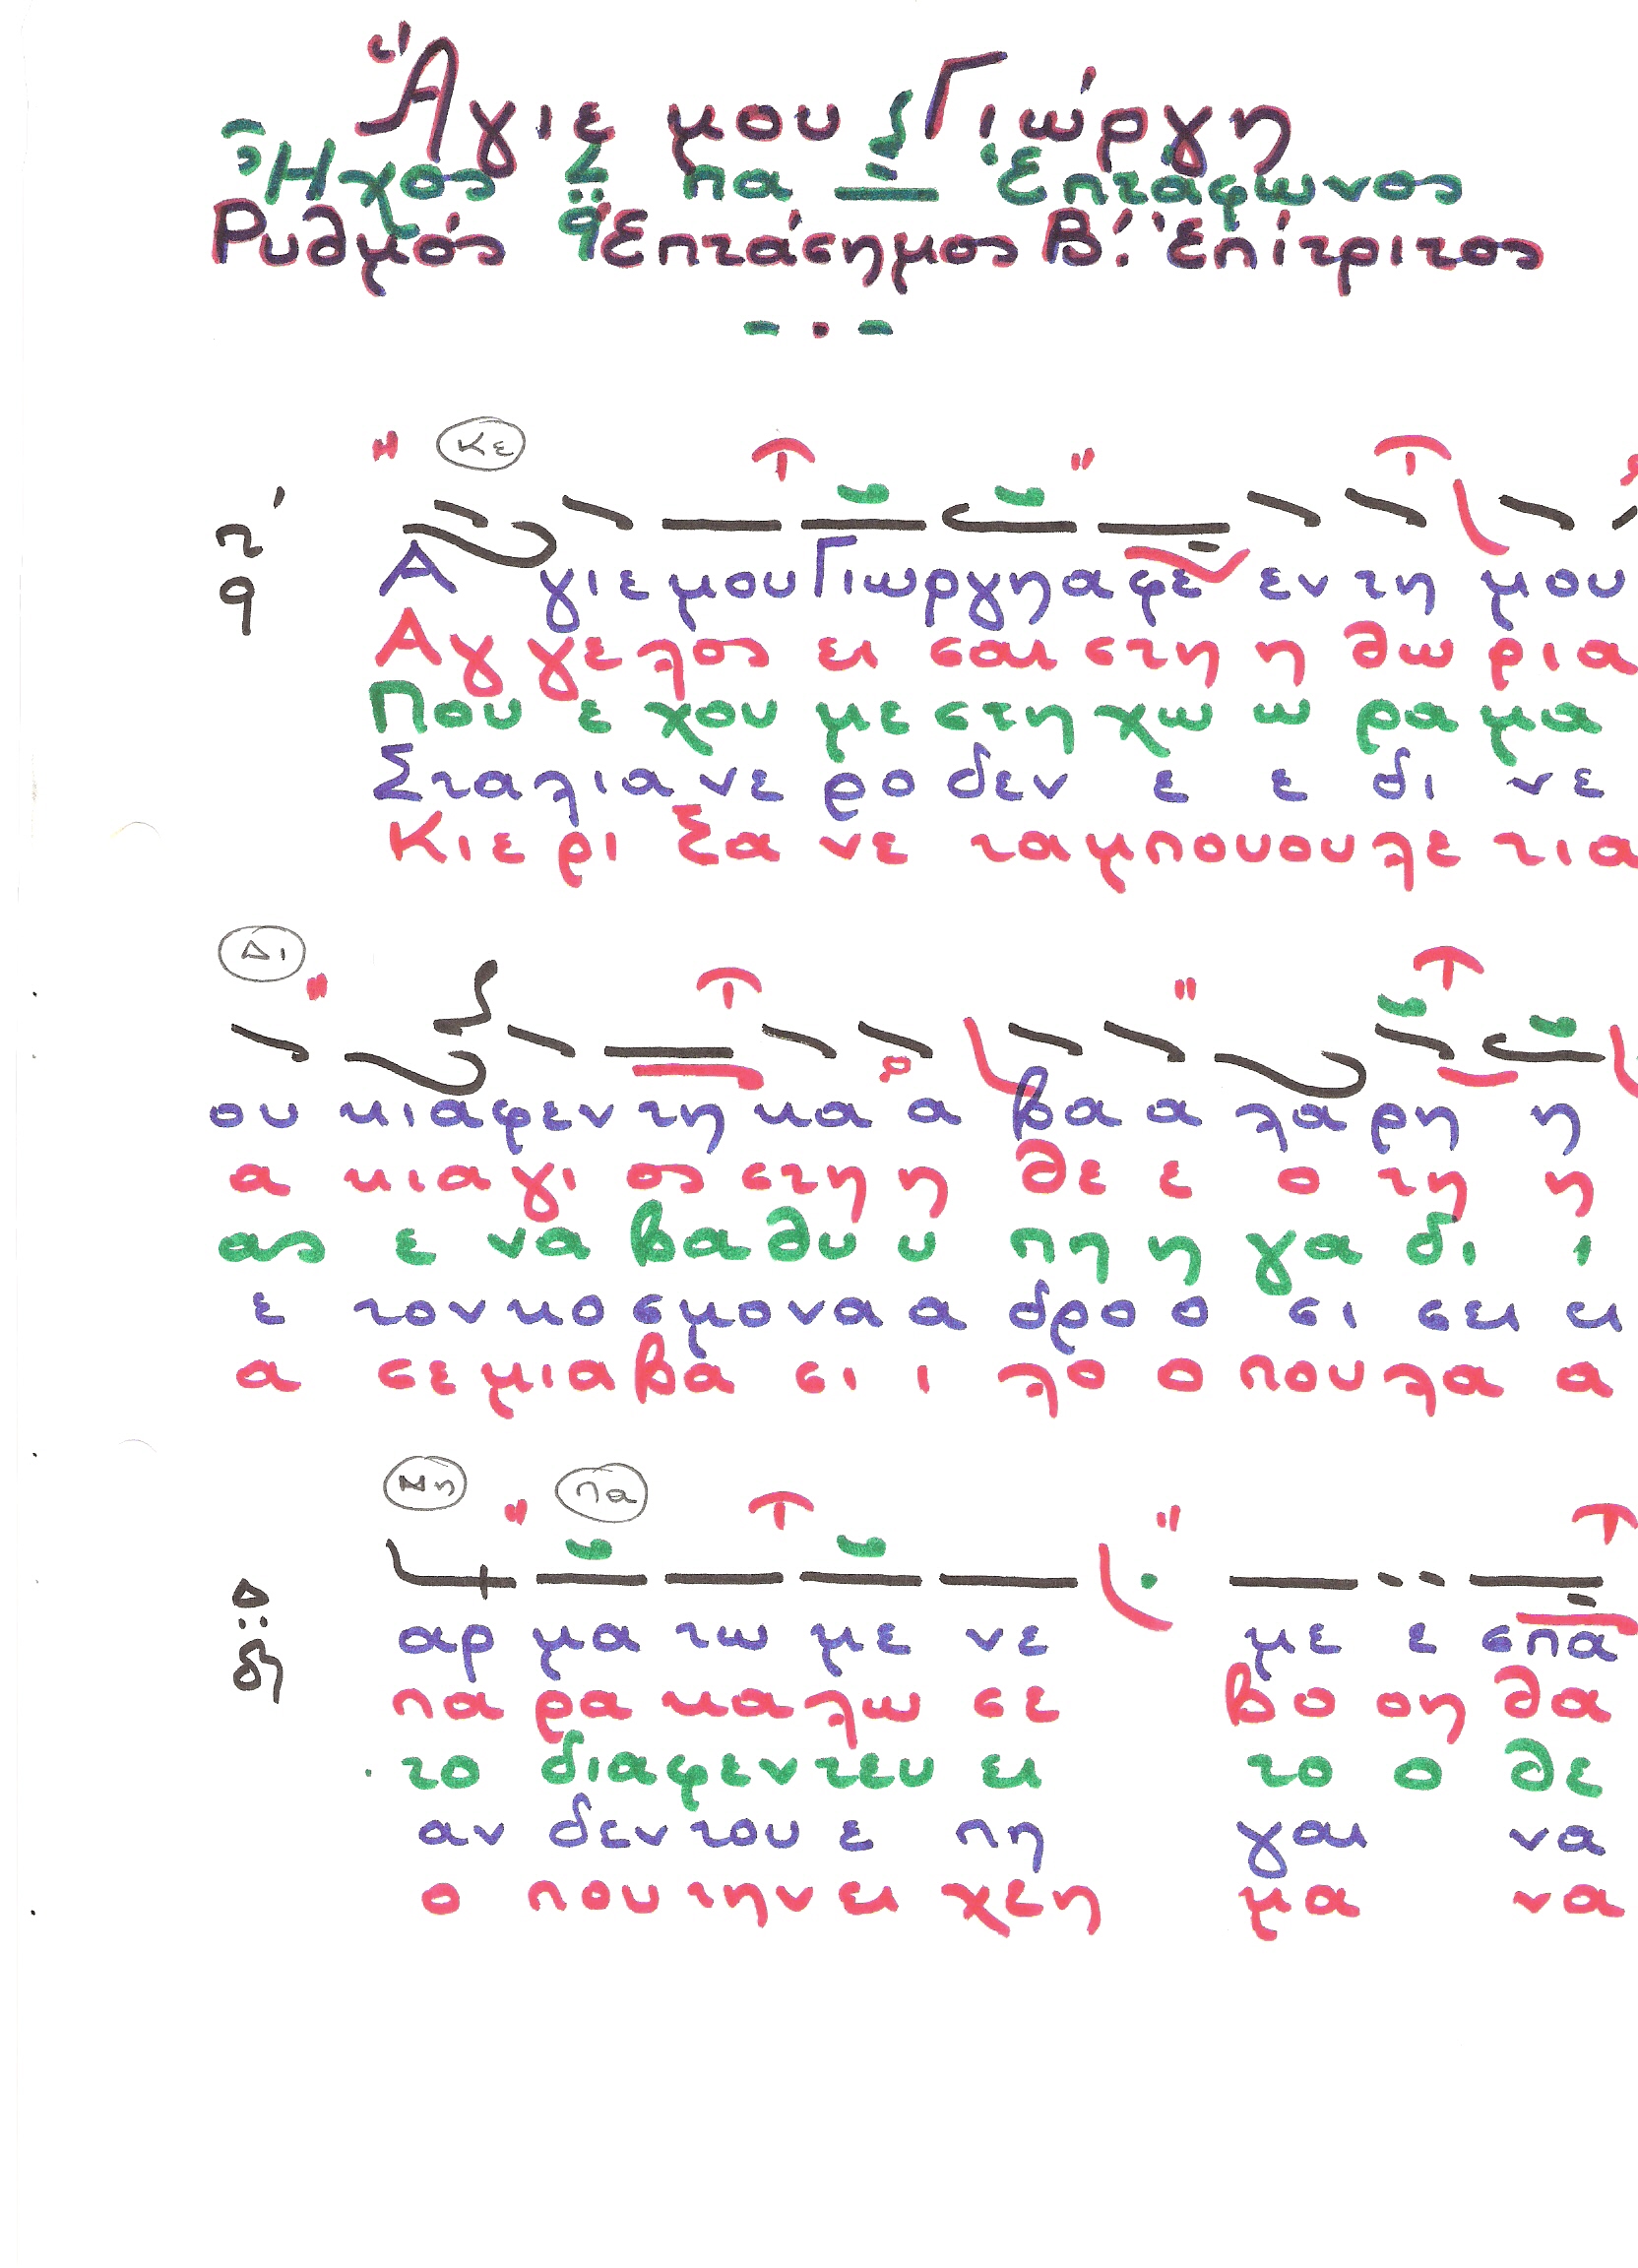 Ἅγιε μου Γιώργη
Ἦχος πα Ἑπτάφωνος
Ρυθμός Ἑπτάσημος Β΄. Ἐπίτριτος
Κε
Α γιε μου Γιωργη αφε εν τη μου
Αγ γε λος ει σαι στη η θω ρια
Που ε χου με στη χω ω ρα μα
Σταλια νε ρο δεν ε ε δι νε
Κιε ρι ξα νε ταμπουουλε τια
Δι
ου κιαφεν τη κα α βα α λα ρη η
α κιαγι ος στη η θε ε ο τη η
ας ε να βαθυ υ πη η γα δι ι
ε τον κο σμο να α δρο ο σι σει ει
α σε μια βα σι ι λο ο που λα α
Νη πα
Δ
αρ μα τω με νε με ε σπα
πα ρα κα λω σε βο οη θα
το διαφεντευ ει το ο θε
αν δεν του ε πη γαι να
ο που την ει χεη μα να